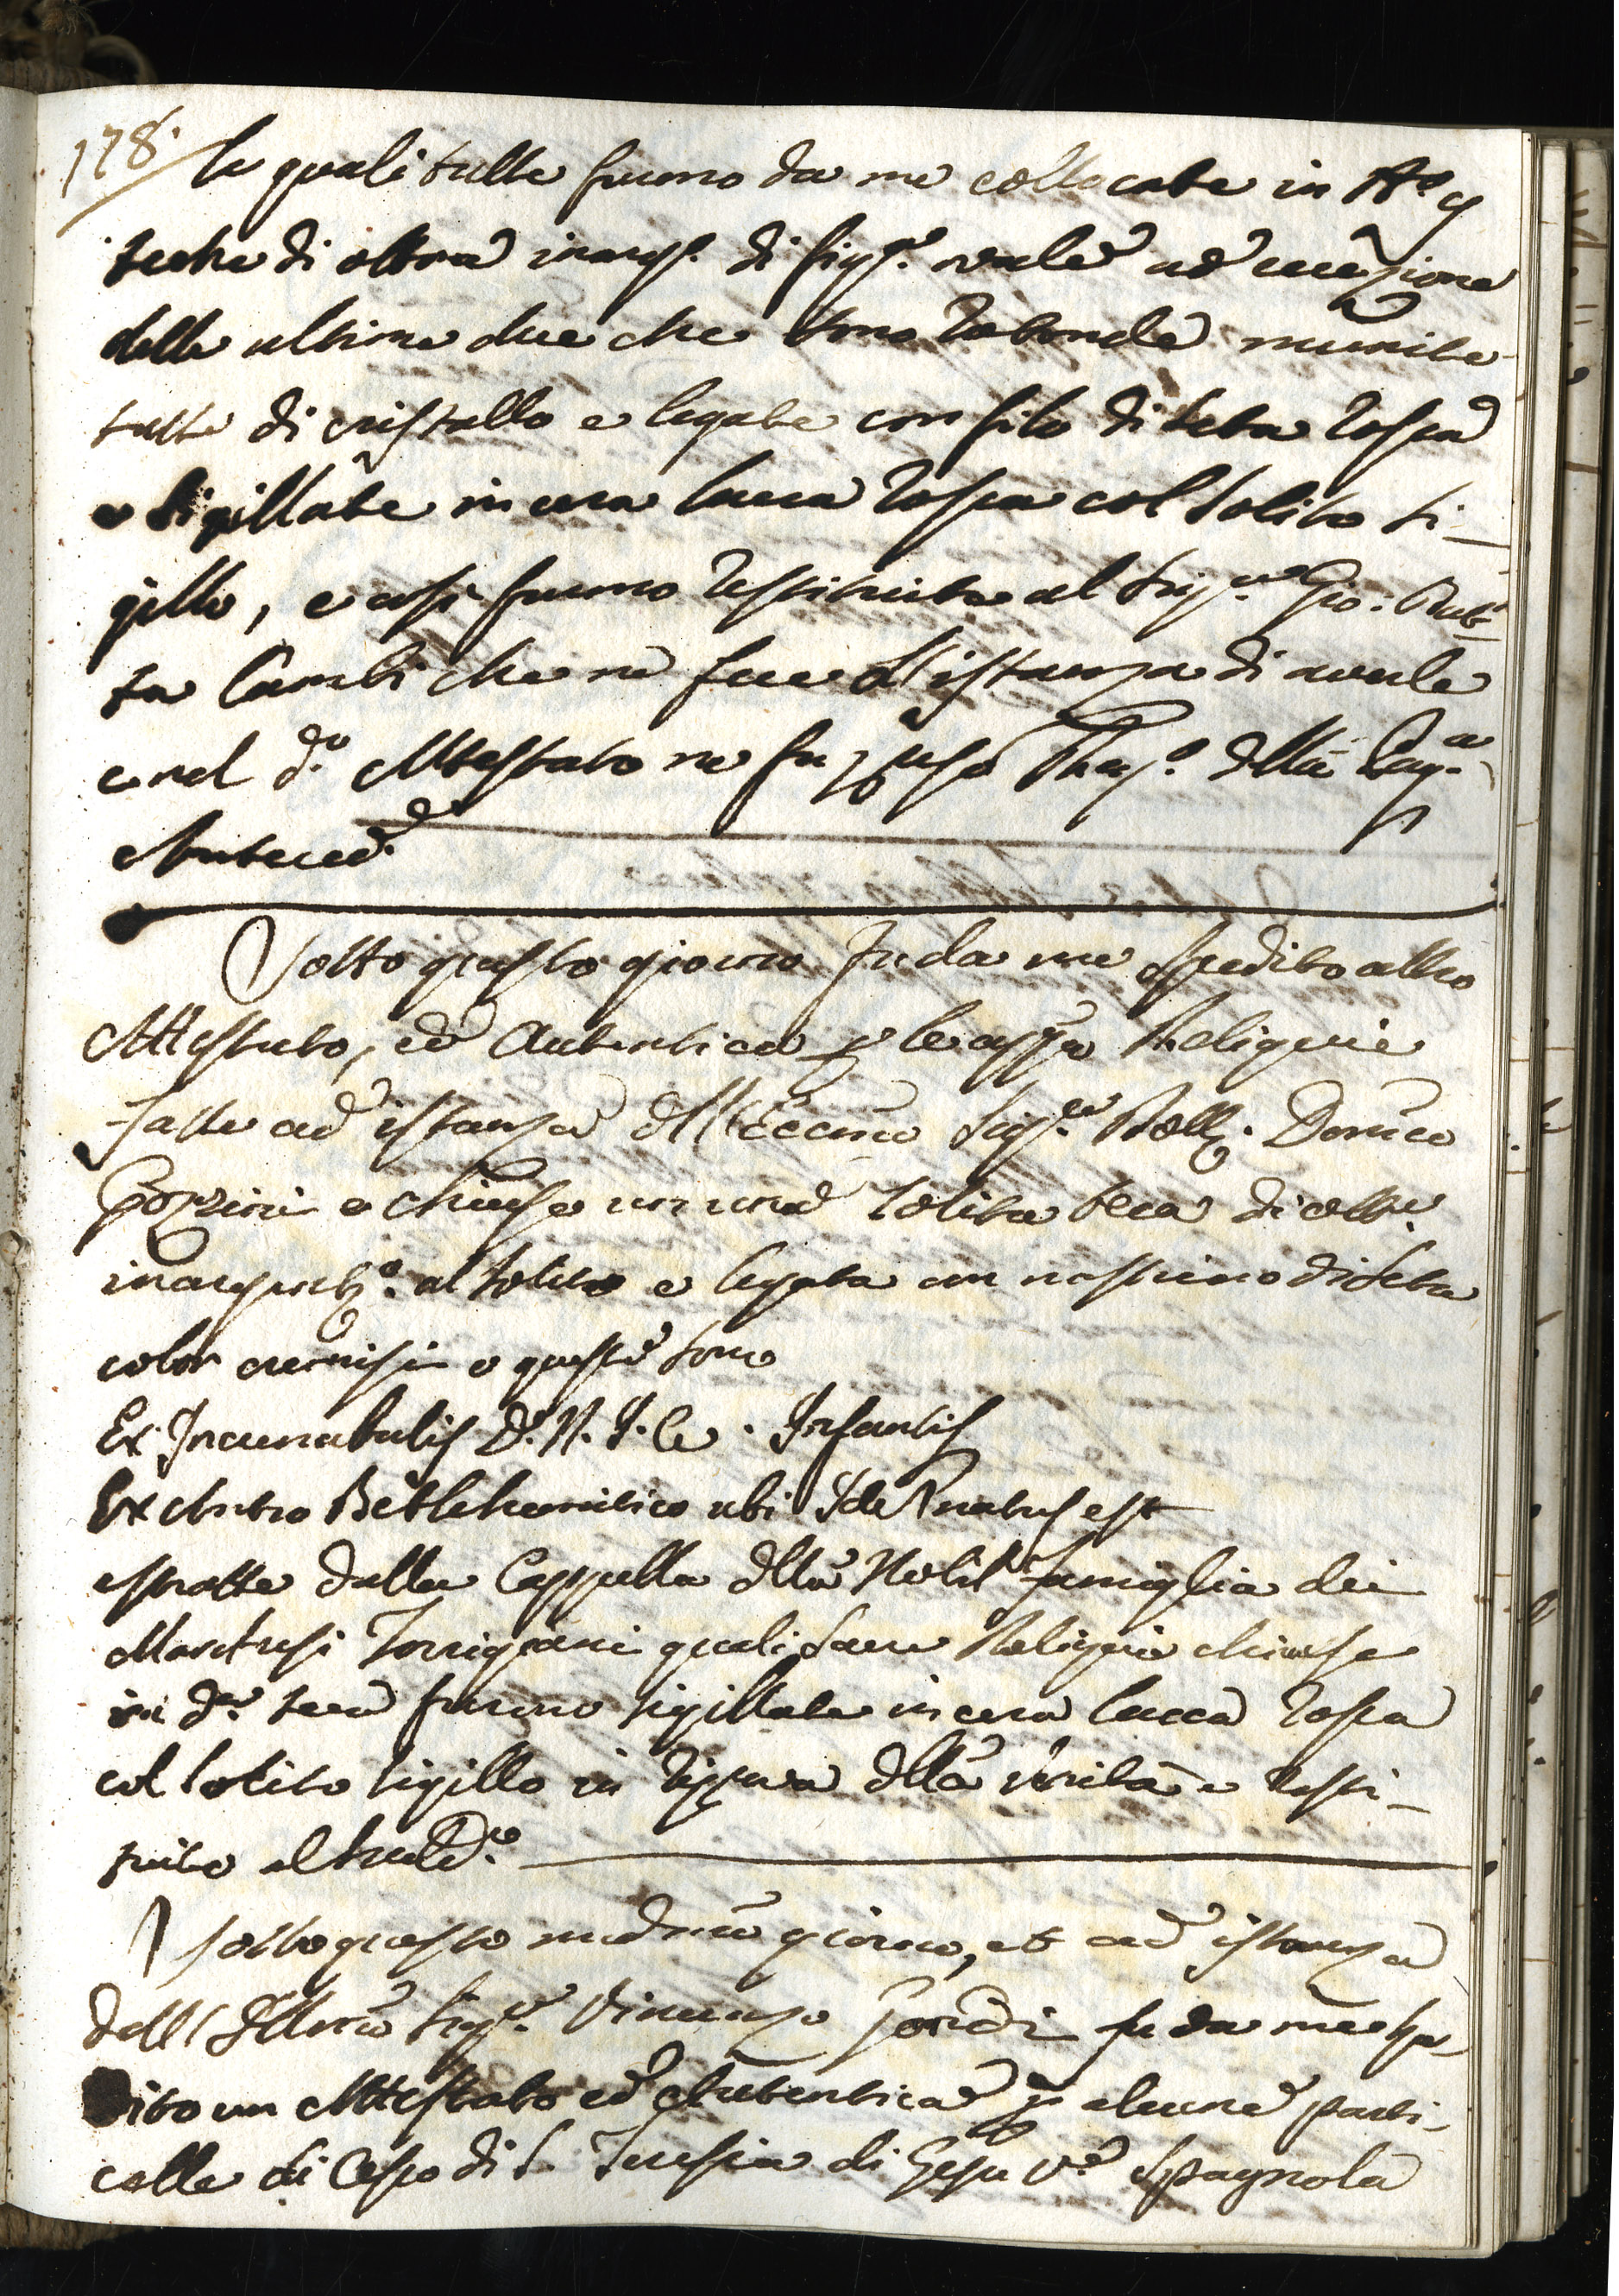 178.
le quali tutte furno da me collocate in N.º 9
teche di ottone inarg.º di fig.ª ovale ad eccezione
delle ultime due che sono rotonde munite
tutte di cristallo e legate con filo di seta rossa
e sigillate in cera lacca rossa col solito si-
gillo, e così furno restituite al Sig.re Gio: Batt-
ta Cambi che ne fece l'istanza di averle
e nel d.º Attestato ne fu della Pag.a
Anteced.e
Sotto questo giorno fu da me spedito altro
Attestato, ed Autentica p le appo Reliquie
fatte ad istanza dell'Eccmo Sig.re Dom.co
Gorzini e chiuse in una solita teca di ott.e
inargent.º al solito e legata con nastrino di seta
color cremisi e queste sono
Ex Incunabulis D. N. J. C. Infantis
Ex Antro Bethlehemitico ubi Ide natus est
estratte dalla Cappella della Nobil Famiglia dei
Marchesi Torrigiani quali Sacre Reliquie chiuse
in d.a teca furno sigillate in cera lacca rossa
col solito sigillo in riprova della verità e resti-
tuite al sud.º
Sotto questo medmo giorno, et ad istanza
dell'Illmo Sig.re Vincenzo Gondi fu da me spe-
dito un Attestato ed Autentica p alcune parti-
celle di Corpo di S. Teresia di Gesu V.e Spagnola